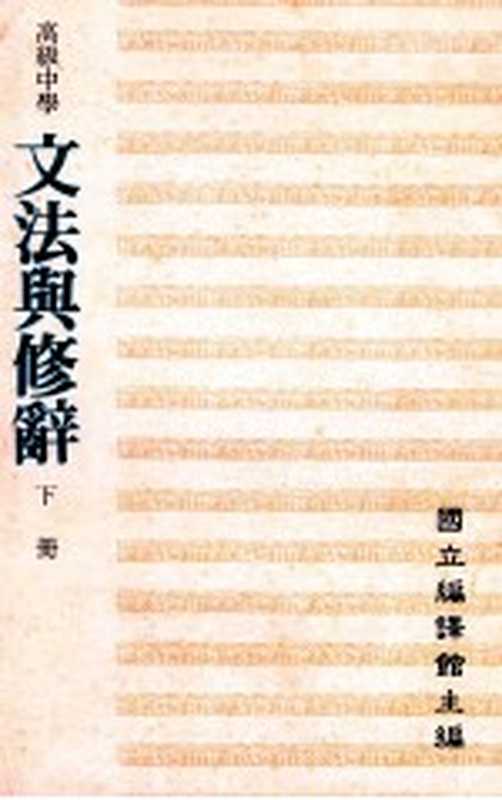 高級中學
文法與修辭
下冊
國立編譯館主編